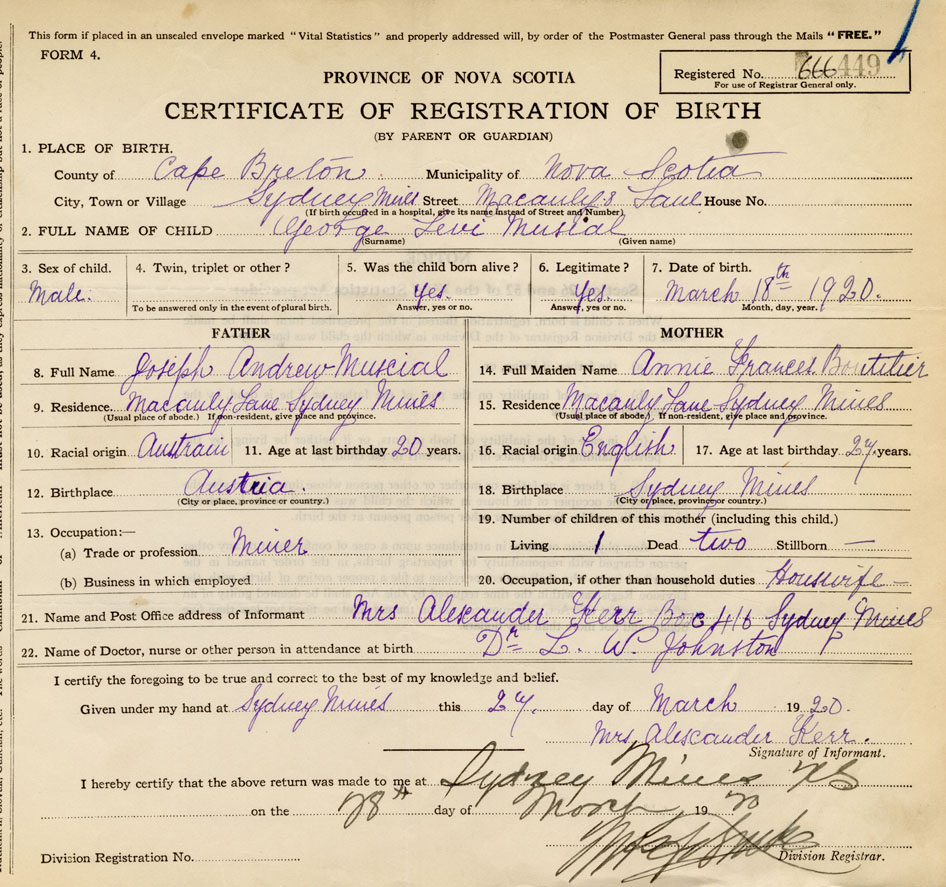 This form if placed in an unsealed envelope marked "Vital Statistics" and properly addressed will, by order of the Postmaster General pass through the Mails "FREE."
FORM 4.
PROVINCE OF NOVA SCOTIA
Registered No. 666449
For use of Registrar General only.
CERTIFICATE OF REGISTRATION OF BIRTH
(BY PARENT OR GUARDIAN)
1. PLACE OF BIRTH.
County of Cape Breton. Municipality of Nova Scotia
City, Town or Village Sydney Mines Street Macauly's Lane House No.
(If birth occurred in a hospital, give its name instead of Street and Number)
2. FULL NAME OF CHILD George Levi Musial
(Surname) (Given name)
3. Sex of child. 4. Twin, triplet or other? 5. Was the child born alive? 6. Legitimate? 7. Date of birth.
Male. Yes. Yes. March 18th 1920.
To be answered only in the event of plural birth. Answer, yes or no. Answer, yes or no. Month, day, year.
FATHER MOTHER
8. Full Name Joseph Andrew Muscial 14. Full Maiden Name Annie Frances Boutilier
9. Residence. Macauly Lane Sydney Mines 15. Residence Macauly Lane Sydney Mines
(Usual place of abode.) If non-resident, give place and province. (Usual place of abode.) If non-resident, give place and province.
10. Racial origin Austrain 11. Age at last birthday 20 years. 16. Racial origin English 17. Age at last birthday 27. years.
12. Birthplace Austria. 18. Birthplace Sydney Mines
(City or place, province or country.) (City or place, province or country.)
13. Occupation:— 19. Number of children of this mother (including this child.)
(a) Trade or profession Miner Living 1 Dead two Stillborn —
(b) Business in which employed 20. Occupation, if other than household duties Houswife —
21. Name and Post Office address of Informant Mrs Alexcander Kerr Box 416 Sydney Mines
22. Name of Doctor, nurse or other person in attendance at birth Dr L. W. Johnston
I certify the foregoing to be true and correct to the best of my knowledge and belief.
Given under my hand at Sydney Mines this 27. day of March 1920.
Mrs. Alexcander Kerr.
Signature of Informant.
I hereby certify that the above return was made to me at Sydney Mines NS
on the 28th day of March 1920
Division Registration No. Division Registrar.